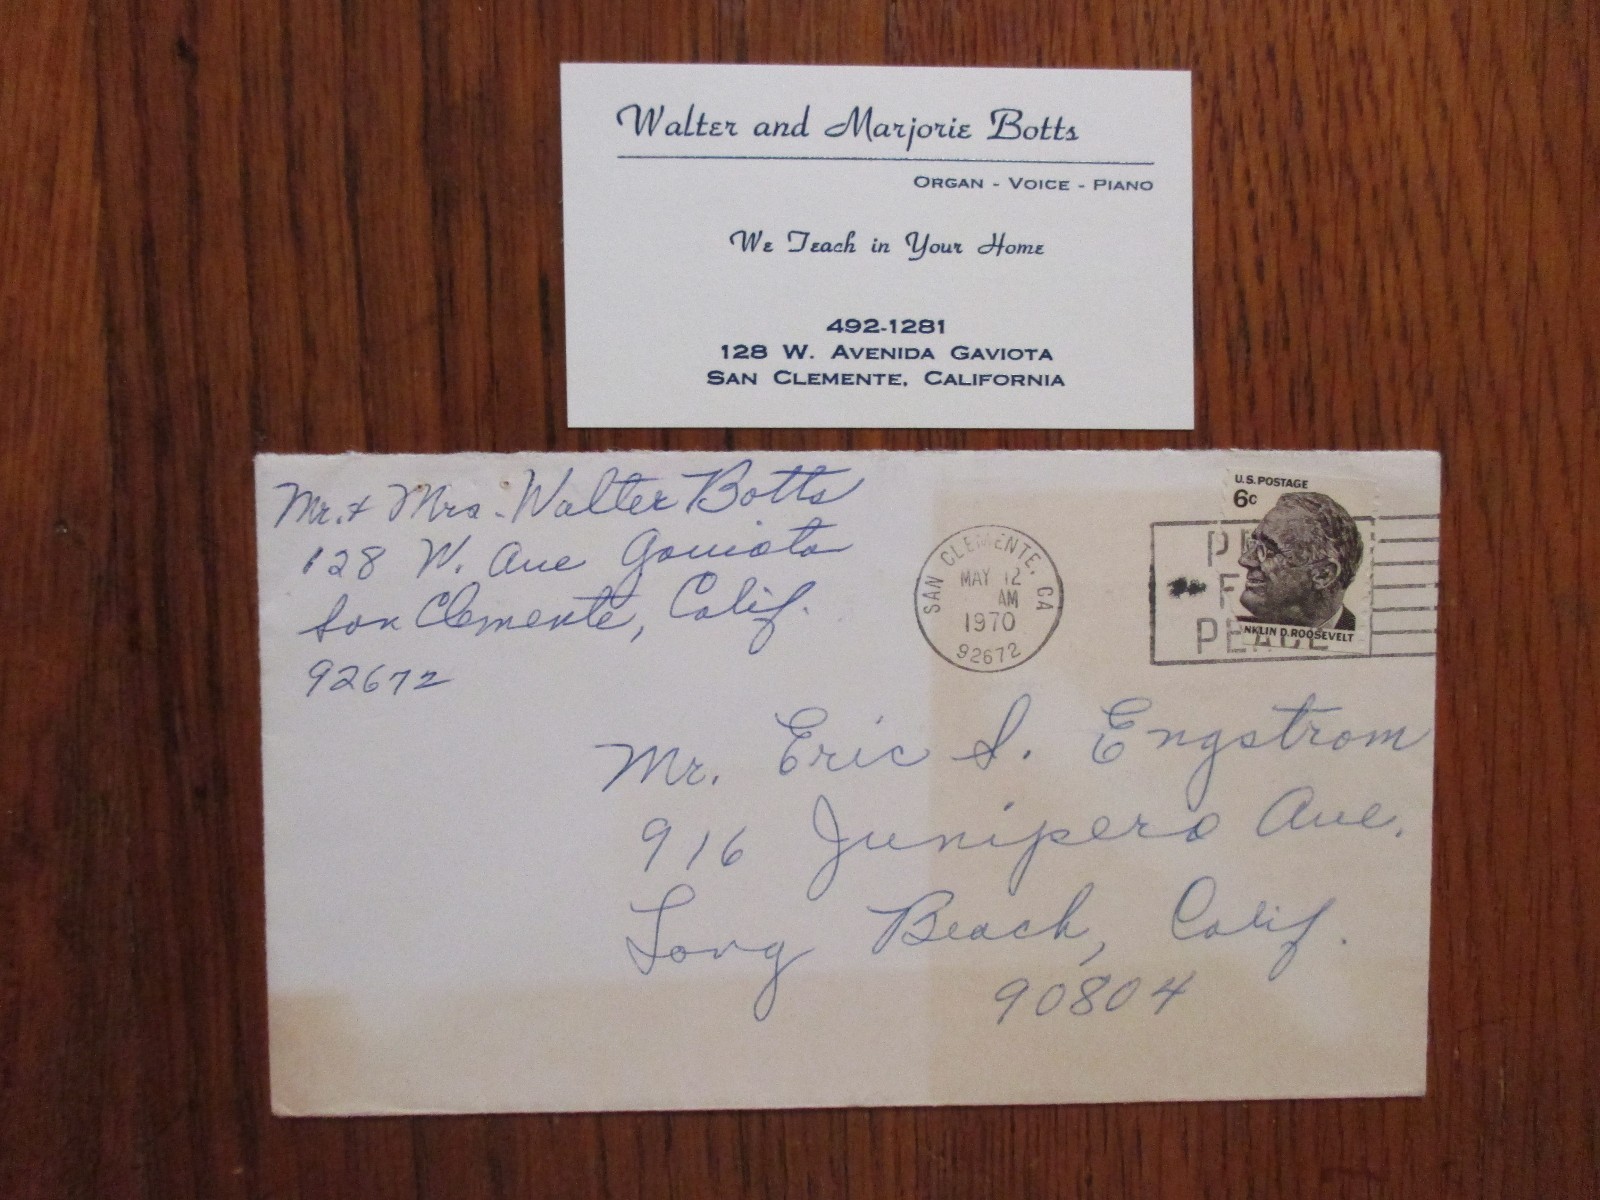 Walter and Marjorie Botts
ORGAN - VOICE - PIANO
We Teach in Your Home
492-1281
128 W. AVENIDA GAVIOTA
SAN CLEMENTE, CALIFORNIA
Mr. + Mrs. Walter Botts
128 W. Ave Gaviota
San Clemente, Calif.
92672
SAN CLEMENTE, CA
MAY 12
AM
1970
92672
U.S. POSTAGE
6c
NKLIN D. ROOSEVELT
PEACE
Mr. Eric S. Engstrom
916 Junipero Ave.
Long Beach, Calif.
90804